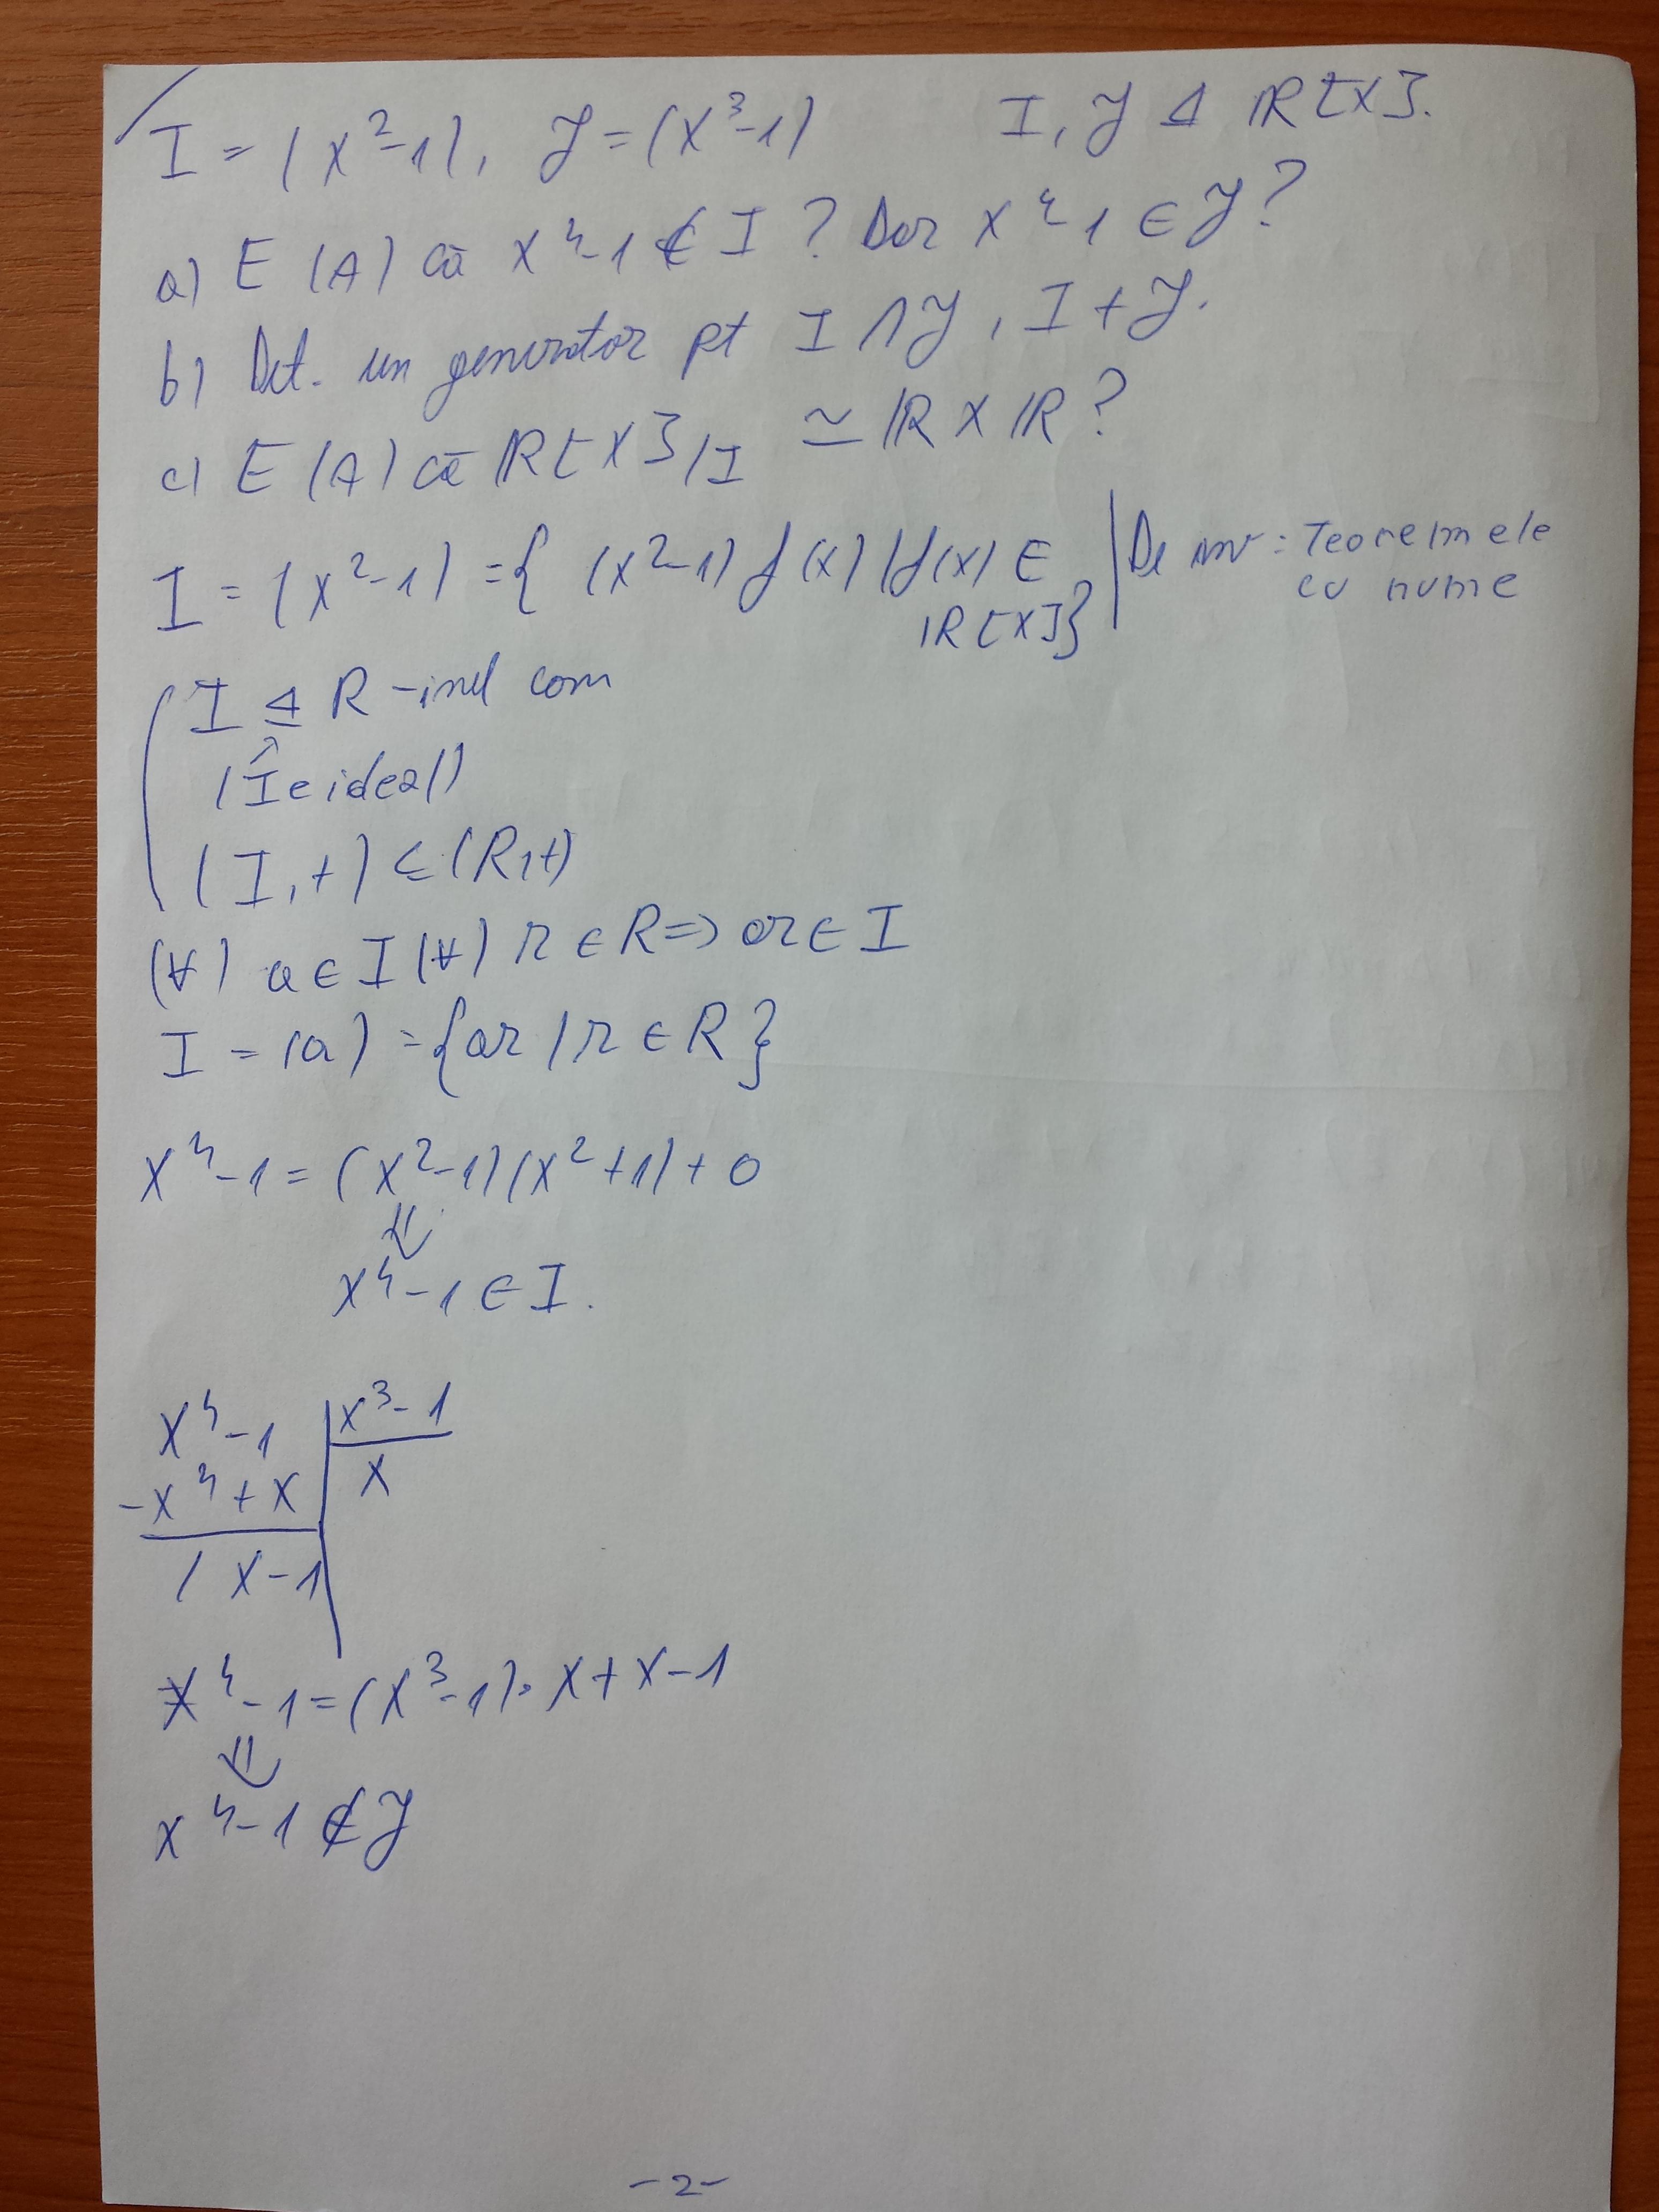 I = (x²-1), J = (x³-1) I, J ⊴ ℝ[x].
a) E (A) că x⁴-1 ∉ I ? Dar x⁴-1 ∈ J ?
b) Det. un generator pt I ∩ J, I + J.
c) E (A) că ℝ[x]/I ≃ ℝ x ℝ ?
I = (x²-1) = { (x²-1) f(x) | f(x) ∈ ℝ[x]}
De inv: Teoremele
cu nume
I ⊴ R - inel com
(I e ideal)
(I, +) ≤ (R, +)
(∀) a ∈ I (∀) r ∈ R => ar ∈ I
I = (a) = {ar / r ∈ R}
x⁴-1 = (x²-1)(x²+1) + 0
⇓
x⁴-1 ∈ I.
x⁴-1 | x³-1
-x⁴+x | x
/ x-1
x⁴-1 = (x³-1)·x + x-1
⇓
x⁴-1 ∉ J
-2-